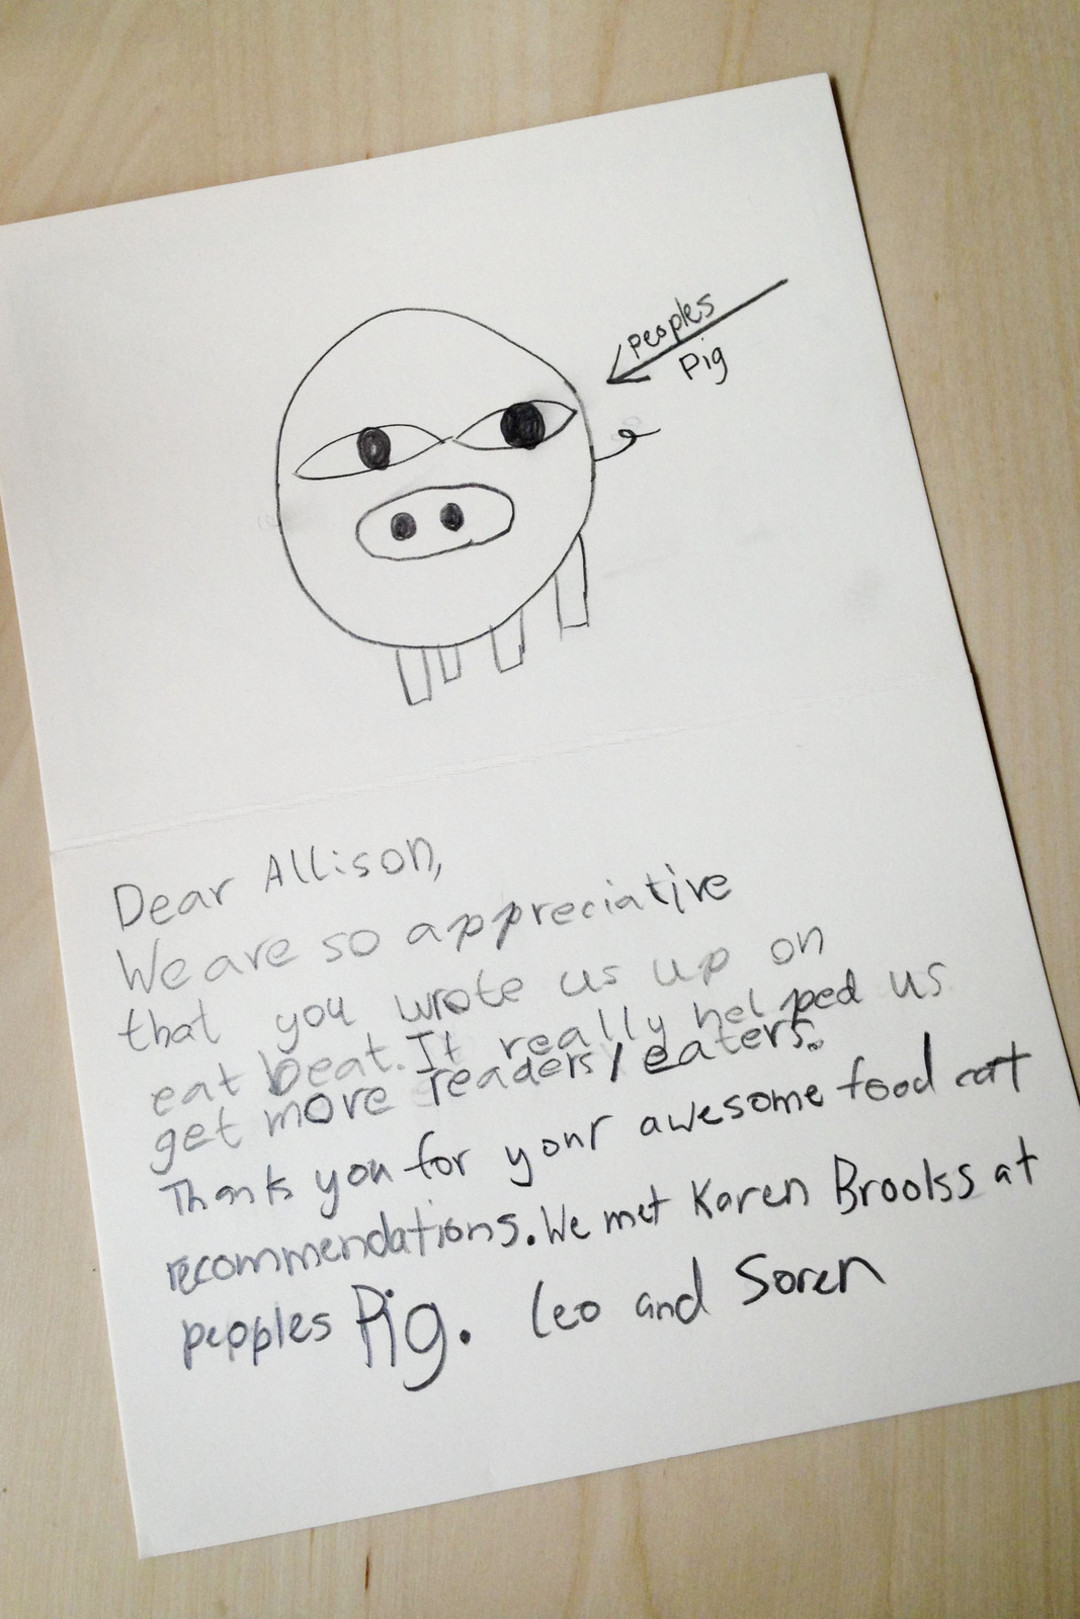 peoples
Pig
Dear Allison,
We are so appreciative
that you wrote us up on
eat beat. It really helped us
get more readers/eaters.
Thank you for your awesome food cart
recommendations. We met Karen Brooks at
peoples Pig. Leo and Soren